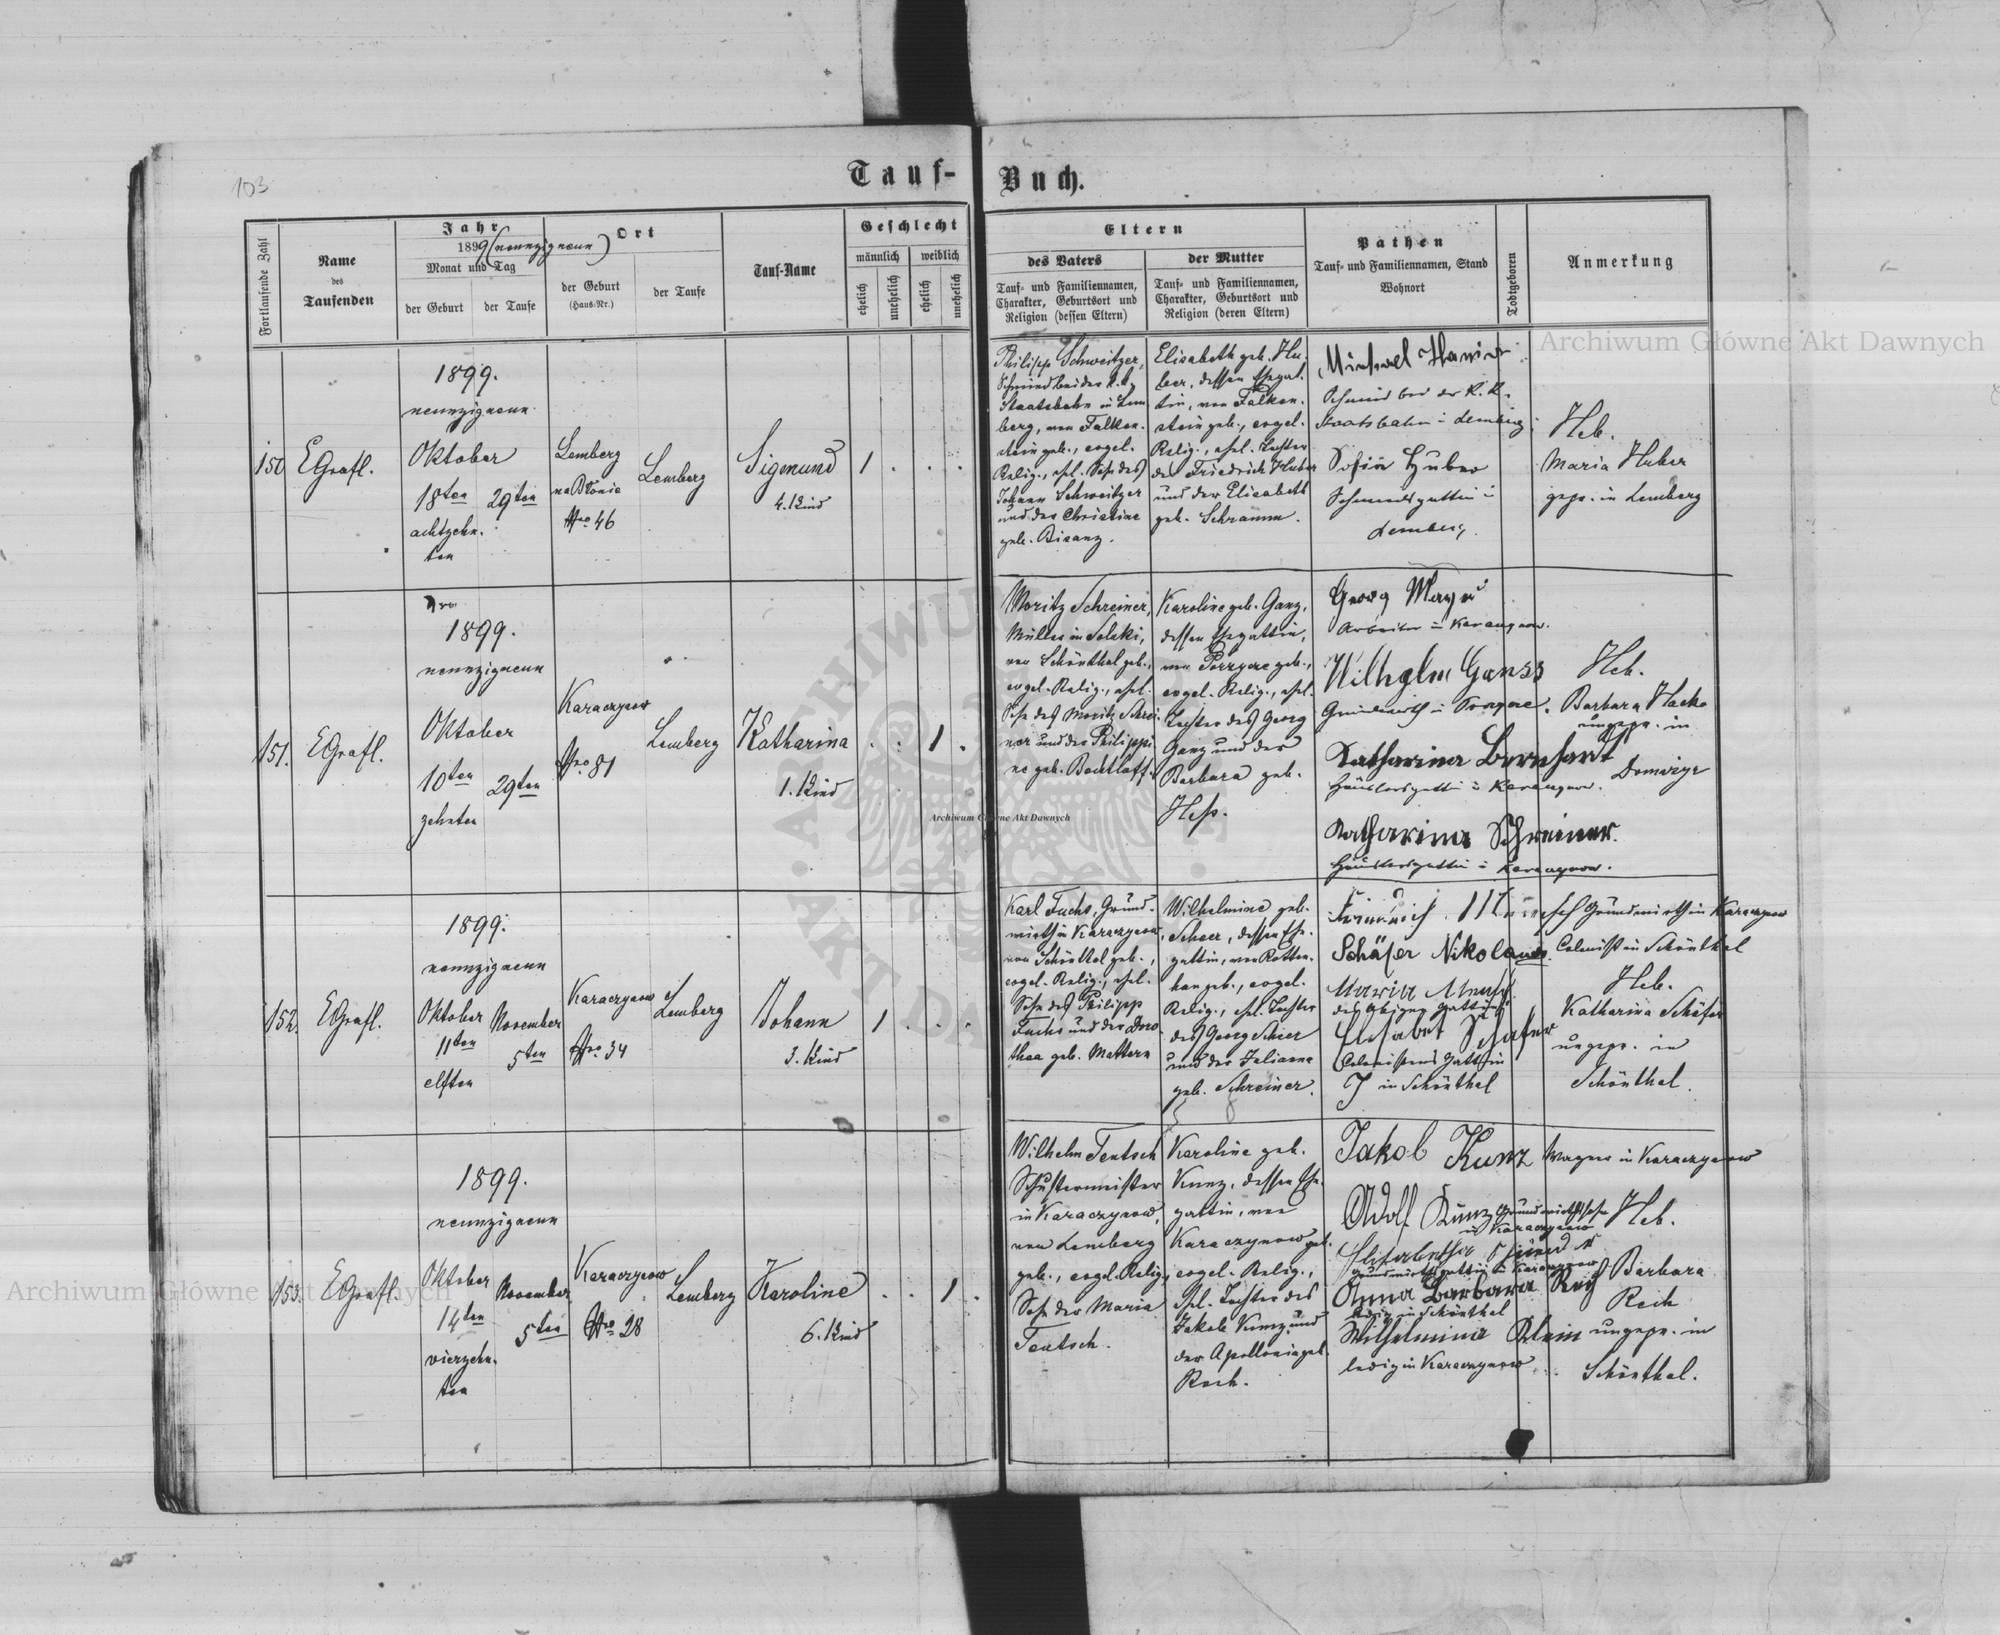 103
Tauf-Buch.
Fortlaufende Zahl
Name
des
Taufenden
Jahr
1899 (neunzigneun)
Monat und Tag
der Geburt
der Taufe
Ort
der Geburt
(Haus-Nr.)
der Taufe
Tauf-Name
Geschlecht
männlich
weiblich
ehelich
unehelich
ehelich
unehelich
Eltern
des Vaters
Tauf- und Familiennamen,
Charakter, Geburtsort und
Religion (dessen Eltern)
der Mutter
Tauf- und Familiennamen,
Charakter, Geburtsort und
Religion (deren Eltern)
Pathen
Tauf- und Familiennamen, Stand
Wohnort
Todtgeboren
Anmerkung
150
EGrafl.
1899.
neunzigneun
Oktober
18ten
achtzehn-
ten
29ten
Lemberg
na Błonie
Nro 46
Lemberg
Sigmund
4. Kind
1
Philipp Schweitzer,
Schmied bei der k. k.
Staatsbahn in Lem
berg, von Falken-
stein geb., evgel.
Relig., ehel. Sohn des
Johann Schweitzer
und der Christine
geb. Bisanz.
Elisabeth geb. Hu-
ber, dessen Ehegat-
tin, von Falken-
stein geb., evgel.
Relig., ehel. Tochter
des Friedrich Huber
und der Elisabeth
geb. Schramm.
Schmied bei der K. K.
Staatsbahn in Lemberg
Sofia Huber
Schmiedsgattin in
Lemberg.
Heb.
Maria Huber
gepr. in Lemberg
151.
EGrafl.
1899.
neunzigneun
Oktober
10ten
zehnten
29ten
Karaczynow
Nro 81
Lemberg
Katharina
1. Kind
1
Moritz Schreiner,
Müller in Solski,
von Schönthal geb.,
evgel. Relig., ehel.
Sohn des Moritz Schrei-
ner und der Philippi-
ne geb. Bechtloff.
Karoline geb. Ganz,
dessen Ehegattin,
von Porzyce geb.,
evgel. Relig., ehel.
Tochter des Georg
Ganz und der
Barbara geb.
Heß.
Georg Mayer
Arbeiter in Karaczynow.
Wilhelm Ganss
Grundwirth in
Katharina Bernhardt
Häuslersgattin in Karaczynow.
Katharina Schreiner.
Häuslersgattin in Karaczynow.
Heb.
Barbara Hacke
ungepr. in
Domażyr
152.
EGrafl.
1899.
neunzigneun
Oktober
11ten
elften
November
5ten
Karaczynow
Nro 34
Lemberg
Johann
3. Kind
1
Karl Fuchs, Grund-
wirth in Karaczynow,
von Schönthal geb.,
evgel. Relig., ehel.
Sohn des Philipp
Fuchs und der Doro
thea geb. Mattern
Wilhelmine geb.
Scheer, dessen Ehe-
gattin, von Rotten-
han geb., evgel.
Relig., ehel. Tochter
des Georg Scheer
und der Julianna
geb. Schreiner.
Grundwirth in Karaczynow
Schäfer Nikolaus. Colonist in Schönthal
Maria
des obigen Gattin
Elisabet Schäfer
Colonistens Gattin
in Schönthal
Heb.
Katharina Schäfer
ungepr. in
Schönthal.
153.
EGrafl.
1899.
neunzigneun
Oktober
14ten
vierzehn-
ten
November
5ten
Karaczynow
Nro 28
Lemberg
Karoline
6. Kind
1
Wilhelm Teutsch
Schustermeister
in Karaczynow,
von Lemberg
geb., evgel. Relig.,
Sohn der Maria
Teutsch.
Karoline geb.
Kunz, dessen Ehe-
gattin, von
Karaczynow geb.
evgel. Relig.,
ehel. Tochter des
Jakob Kunz und
der Apollonia geb.
Rech.
Jakob Kunz Wagner in Karaczynow
Adolf Kunz Grundwirthssohn
in Karaczynow
Grundwirthsgattin in Karaczynow
Anna Barbara
ledig in Schönthal
Wilhelmine Klein
ledig in Karaczynow
Heb.
Barbara
Rech
ungepr. in
Schönthal.
Archiwum Główne Akt Dawnych
Archiwum Główne Akt Dawnych
Archiwum Główne Akt Dawnych